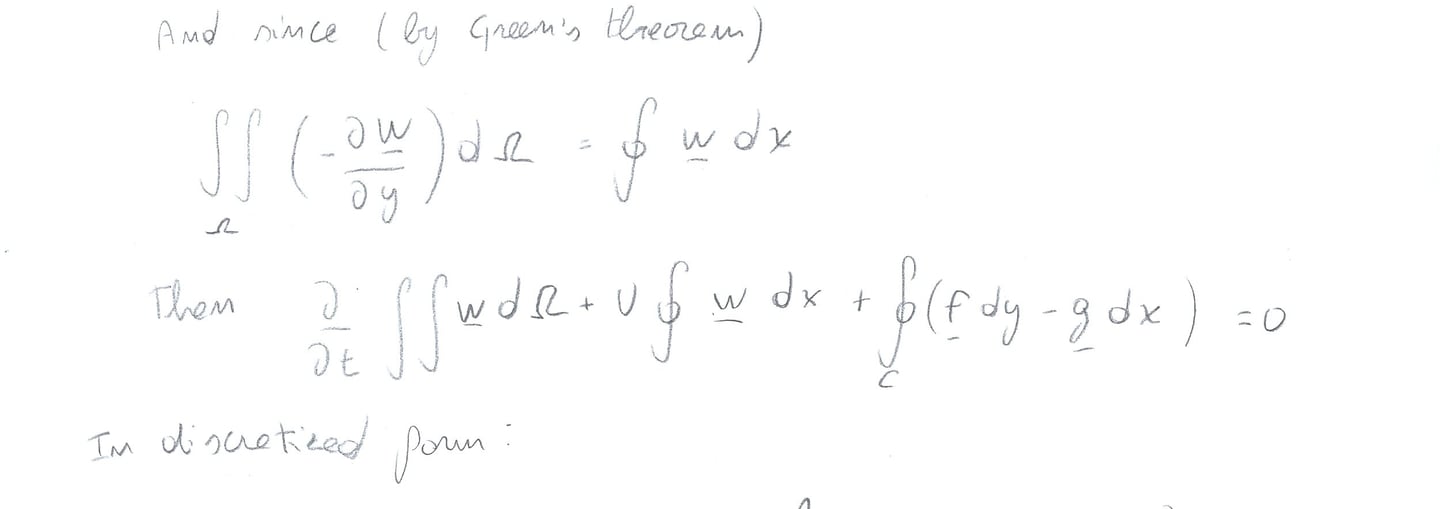 And since (by Green's theorem)
∬_Ω (-∂w̲/∂y) dΩ = ∮ w̲ dx
Then ∂/∂t ∬ w̲ dΩ + U ∮ w̲ dx + ∮_C (f̲ dy - g̲ dx) = 0
In discretized form: